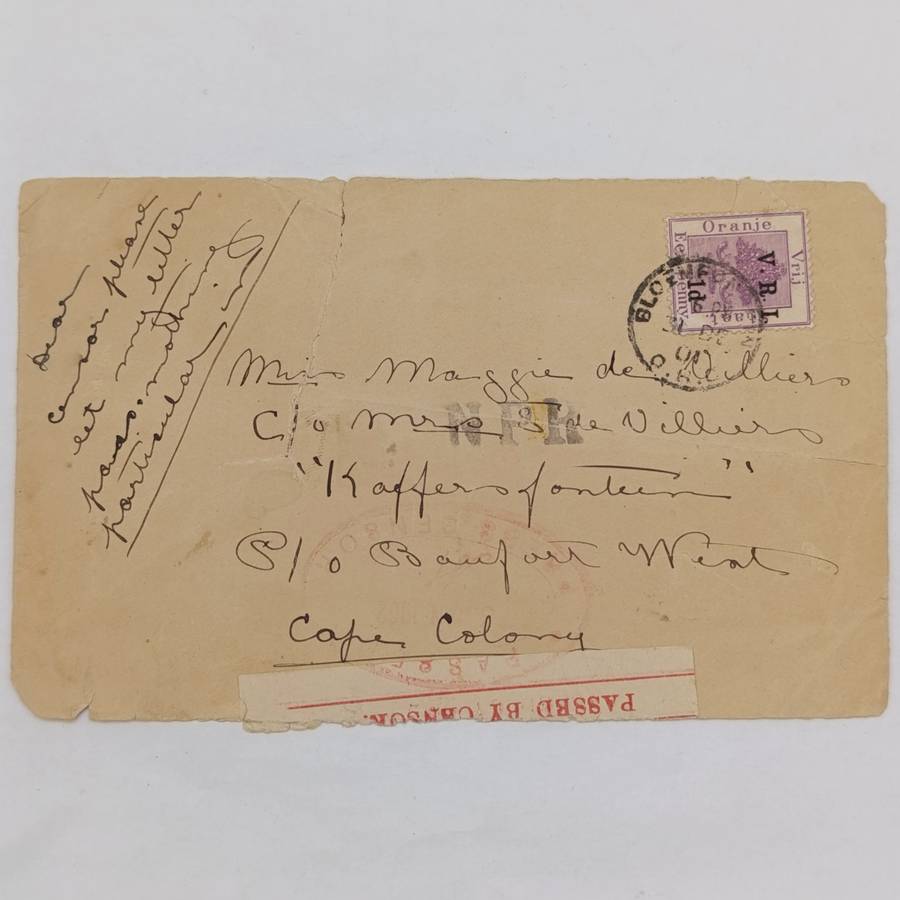 Dear
censor please
let my letter
pass: nothing
particular in
Oranje
Vrij
Eenpenny
V.R.I.
1d
BLOEMFON
31 DE
01
O.R.C.
Miss Maggie de Villiers
C/o Mrs S de Villiers
NPR
"Kaffersfontein"
P/o Beaufort West
Cape Colony
PASSED BY CENSOR.